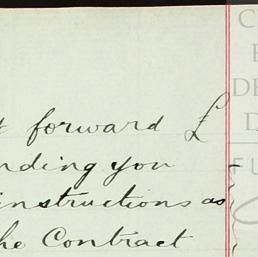 forward £
nding you
instructions as
he Contract